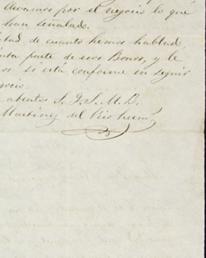 Avanzar por el negocio lo que
han señalado.
de cuanto hemos hablado
parte de esos Bonos, y le
si está conforme en seguir
atentos S. S.
Martinez del Rio